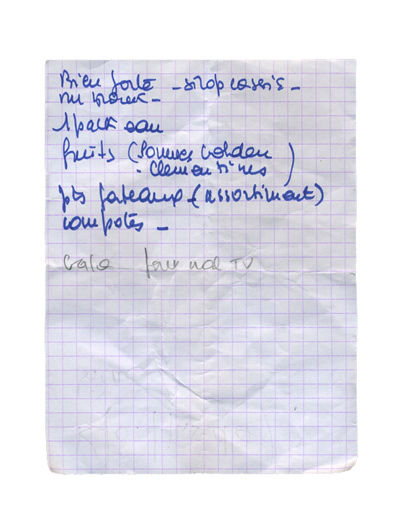 Bière forte - sirop cassis -
1 pack eau
fruits (Pommes Golden
- Clémentines)
pts gateaux (assortiment)
compotes -
Gala journal TV